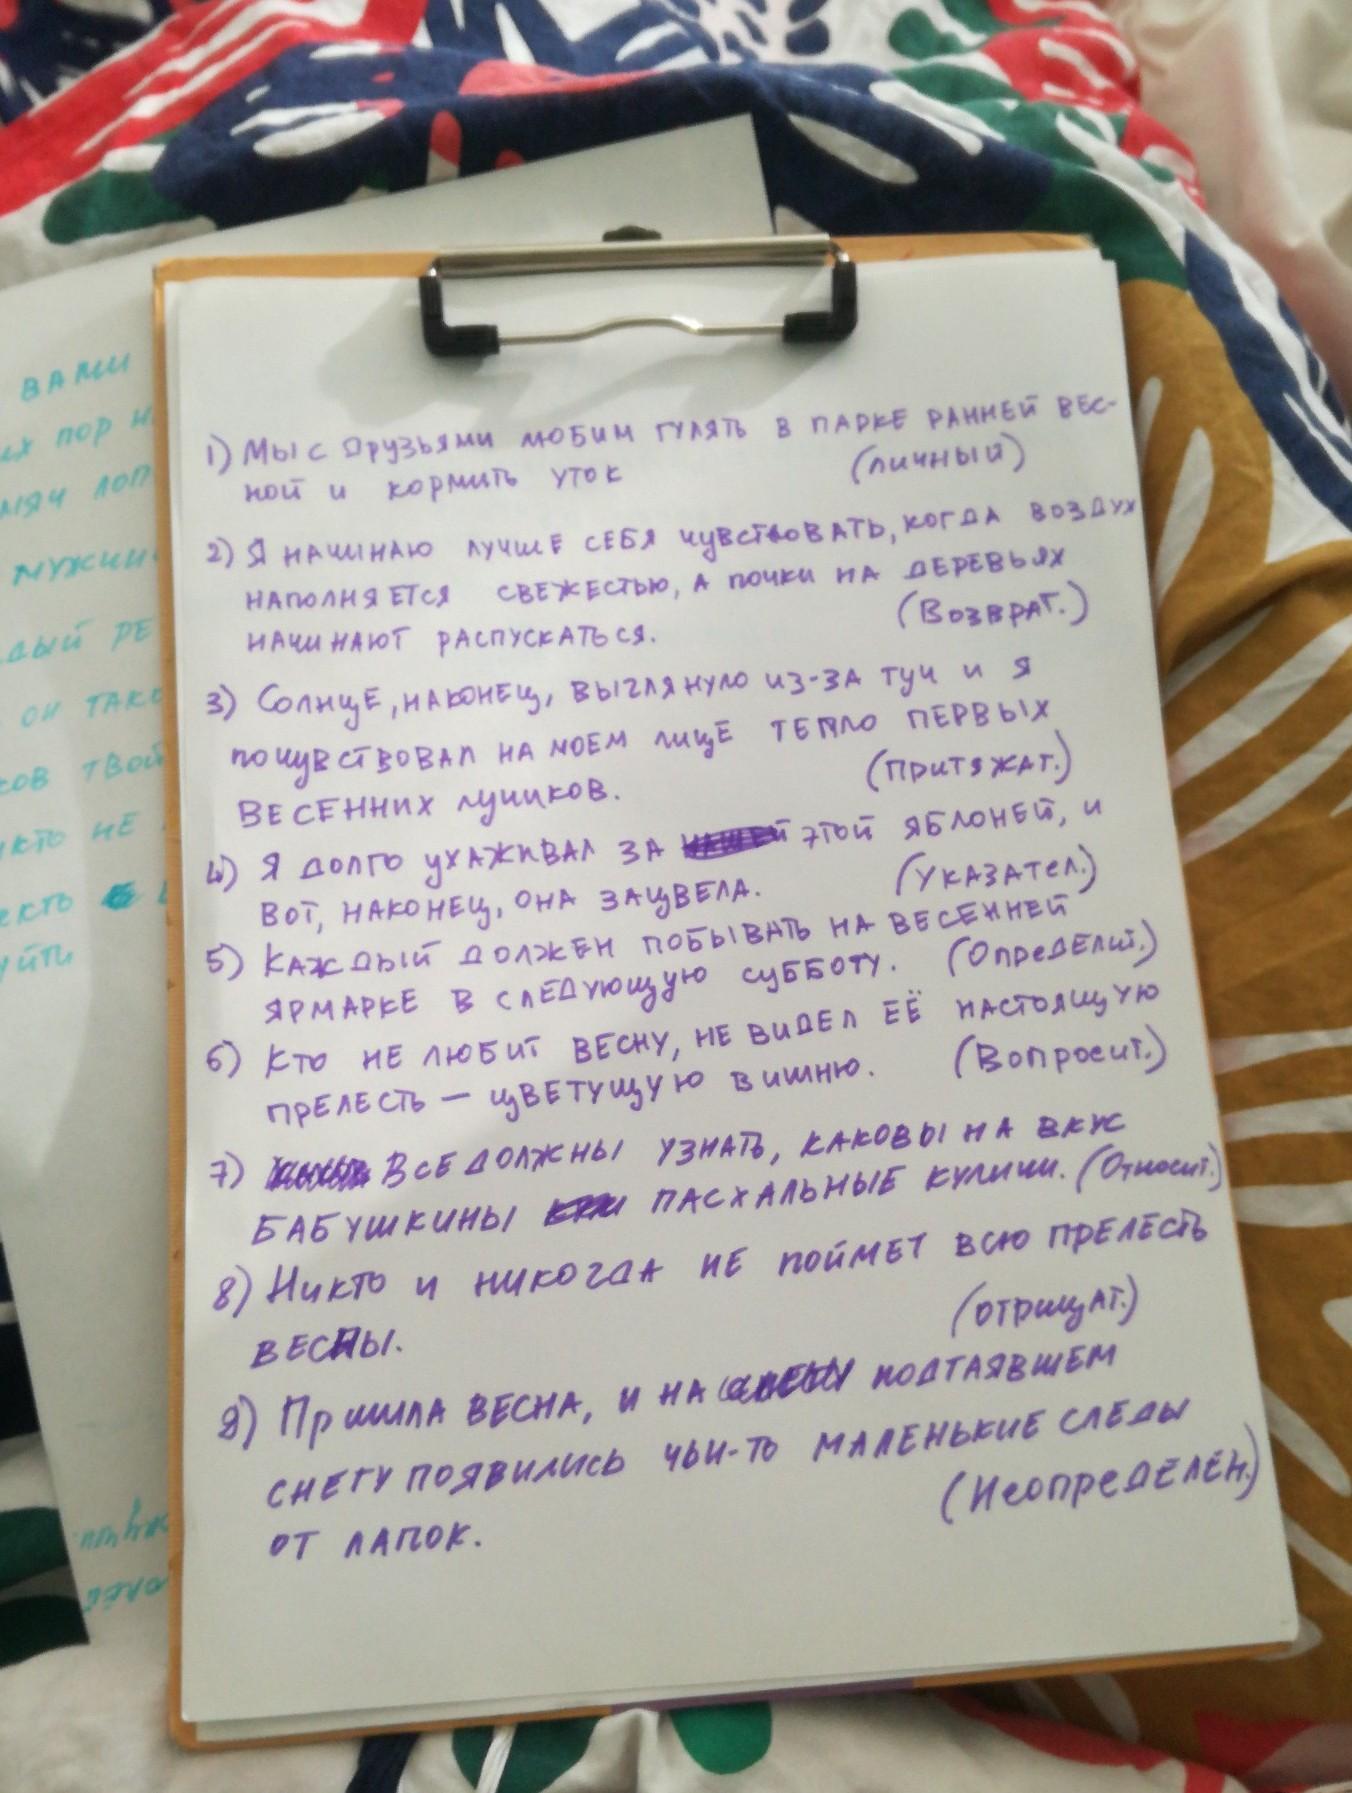 вами
их пор н
мяч лоп
мужчин
дый ре
он тако
ков твой
икто не
екто
уйти
1) Мы с друзьями любим гулять в парке ранней вес-
ной и кормить уток (личный)
2) Я начинаю лучше себя чувствовать, когда воздух
наполняется свежестью, а почки на деревьях
начинают распускаться. (Возврат.)
3) Солнце, наконец, выглянуло из-за туч и я
почувствовал на моем лице тепло первых
весенних лучиков. (Притяжат.)
4) Я долго ухаживал за этой яблоней, и
вот, наконец, она зацвела. (Указател.)
5) Каждый должен побывать на весенней
ярмарке в следующую субботу. (Определит.)
6) Кто не любит весну, не видел её настоящую
прелесть — цветущую вишню. (Вопросит.)
7) Все должны узнать, каковы на вкус
бабушкины пасхальные куличи. (Относит.)
8) Никто и никогда не поймет всю прелесть
весны. (отрицат.)
9) Пришла весна, и на подтаявшем
снегу появились чьи-то маленькие следы
от лапок. (Неопределён.)